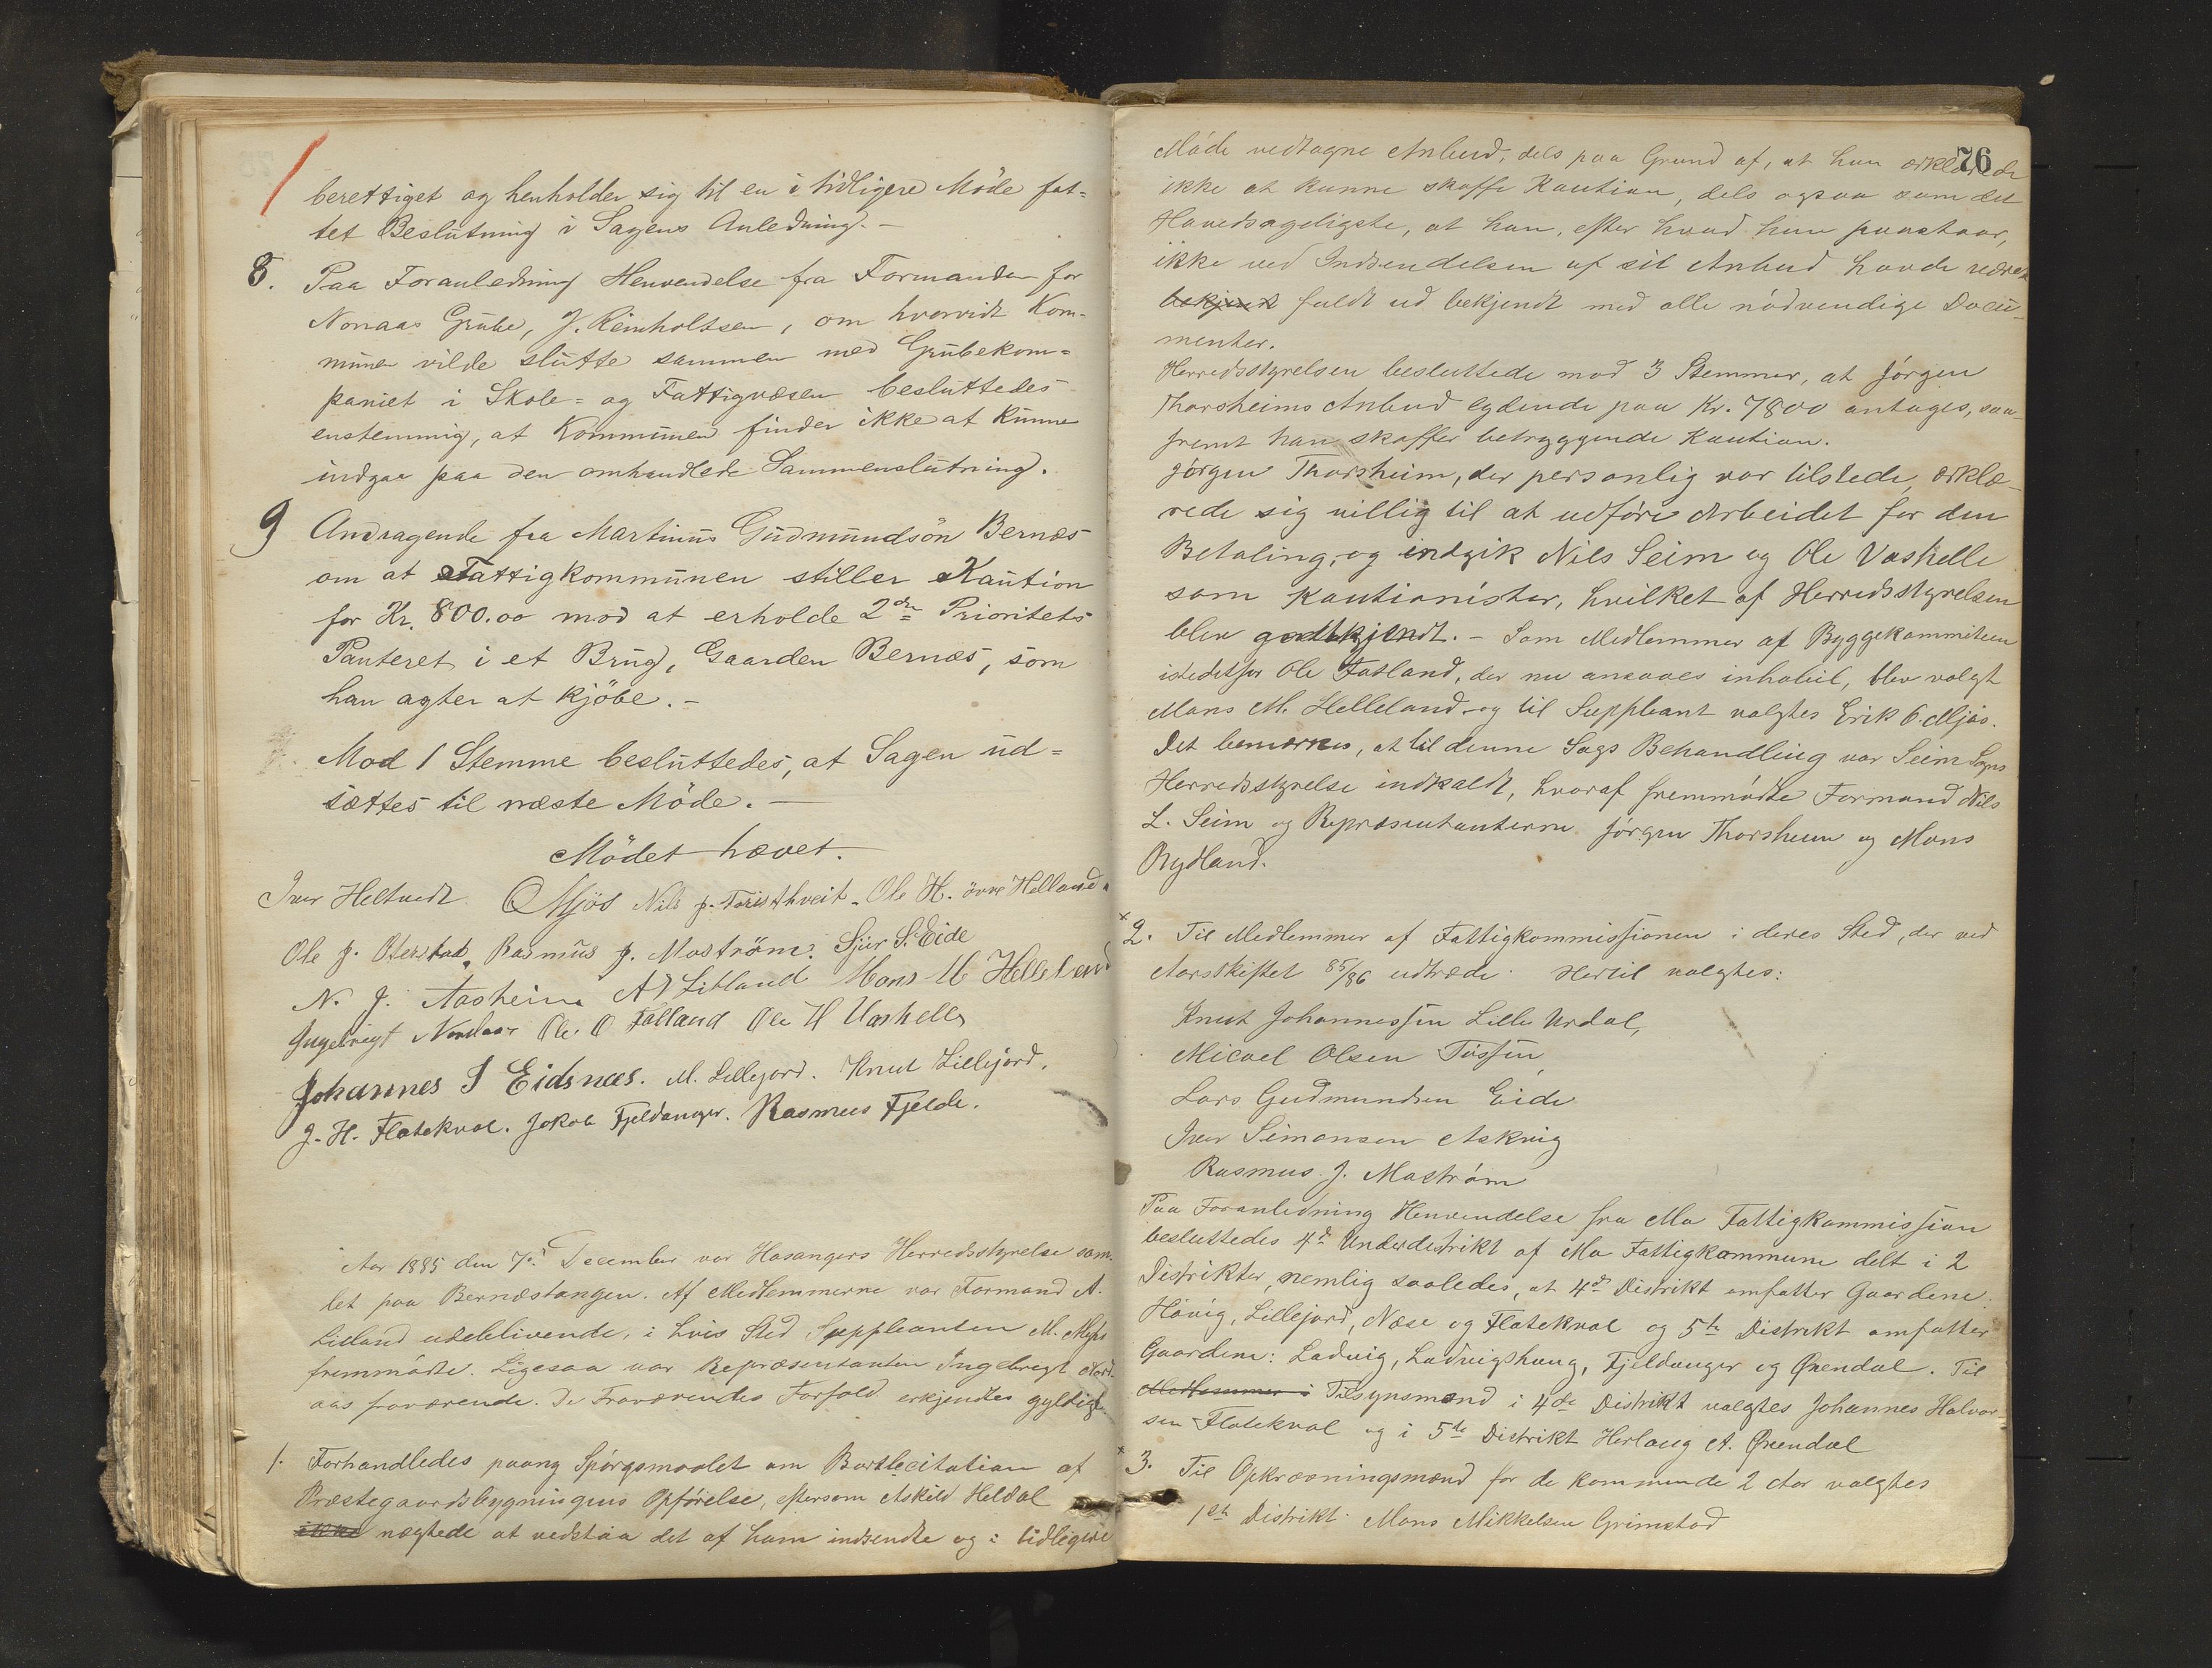 berettiget og henholder sig til en i tidligere Möde fat-
tet Beslutning i Sagens Anledning.-
8. Paa Foranledning Henvendelse fra Formanden for
Nonaas Grube, J. Reinholtsen, om hvorvidt Kom-
munen vilde slutte sammen med Grubekom-
paniet i Skole- og Fattigvæsen besluttedes
enstemmig, at Kommunen finder ikke at kunne
indgaa paa den omhandlede Sammenslutning.
9 Andragende fra Martinus Gudmundsön Bernæs
om at Fattigkommunen stiller Kaution
for Kr. 800.00 mod at erholde 2den Prioritets
Panteret i et Brug, Gaarden Bernæs, som
han agter at kjöbe.-
Mod 1 Stemme besluttedes, at Sagen ud-
sættes til næste Möde.-
Mödet hævet.
Iver Heltvedt O Mjös Nils J. Ole H. övre Helland
Ole J. Oterstad, Rasmus J. Moström. Sjur S. Eide
N. J. Aasheim A Litland Mons M Helleland
Ingebrigt Nordaas Ole O Fatland Ole H Vashelle
Johannes J Eidsnæs. M. Lillejord. Knut Lillejord.
J. H. Flatekval. Jakob Fjeldanger. Rasmus Fjelde.
Aar 1885 den 7de December var Hosangers Herredsstyrelse sam-
let paa Bernæstangen. Af Medlemmerne var Formand A.
Litland udeblivende, i hvis Sted Suppleanten M. Mjøs
fremmødte. Ligesaa var Repræsentanten Ingebrigt Nord-
aas fraværende. De Fraværendes Forfald erkjendtes gyldigt.
1. Forhandledes paany Spørgsmaalet om Bortlicitation af
Præstegaardsbygningens Opførelse, eftersom Askild Heldal
ikke nægtede at vedstaa det af ham indsendte og i tidligere
76
Møde vedtagne Anbud, dels paa Grund af, at han erklærede
ikke at kunne skaffe Kaution, dels ogsaa som det
Hovedsageligste, at han, efter hvad han paastaar,
ikke ved Indsendelsen af sit Anbud havde været
bekjendt fuldt ud bekjendt med alle nødvendige Docu-
menter.
Herredsstyrelsen besluttede mod 3 Stemmer, at Jørgen
Thorsheims Anbud lydende paa Kr. 7800 antages, saa-
fremt han skaffer betryggende Kaution.
Jørgen Thorsheim, der personlig var tilstede, erklæ-
rede sig villig til at udføre Arbeidet for den
Betaling, og indgik Nils Seim og Ole Vashelle
som Kautionister, hvilket af Herredsstyrelsen
blev godtkjendt.- Som Medlemmer af Byggekommiteen
istedetfor Ole Fatland, der nu ansaaes inhabil, blev valgt
Mons M. Helleland og til Suppleant valgtes Erik O. Mjøs.
Det bemærkes, at til denne Sags Behandling var Seim Sogns
Herredsstyrelse indkaldt, hvoraf fremmødte Formand Nils
L. Seim og Repræsentanterne Jørgen Thorsheim og Mons
Rydland.
2. Til Medlemmer af Fattigkommissionen i deres Sted, der ved
Aarsskiftet 85/86 udtræde. Hertil valgtes:
Knut Johannessen Lille Urdal,
Micael Olsen Tossen,
Lars Gudmundsen Eide
Iver Simonsen Askvig
Rasmus J. Mostrøm
Paa Foranledning Henvendelse fra Mo Fattigkommission
besluttedes 4de Underdistrikt af Mo Fattigkommune delt i 2
Distrikter, nemlig saaledes, at 4de Distrikt omfatter Gaardene:
Høvig, Lillejord, Næse og Flatekval og 5te Distrikt omfatter
Gaardene: Ladvig, Ladvigshaug, Fjeldanger og Ørendal. Til
Medlemmer i Tilsynsmænd i 4de Distrikt valgtes Johannes Halvor-
sen Flatekval og i 5te Distrikt Herlaug A. Ørendal
3. Til Opkrævningsmænd for de kommende 2 Aar valgtes
1ste Distrikt. Mons Mikkelsen Grimstad